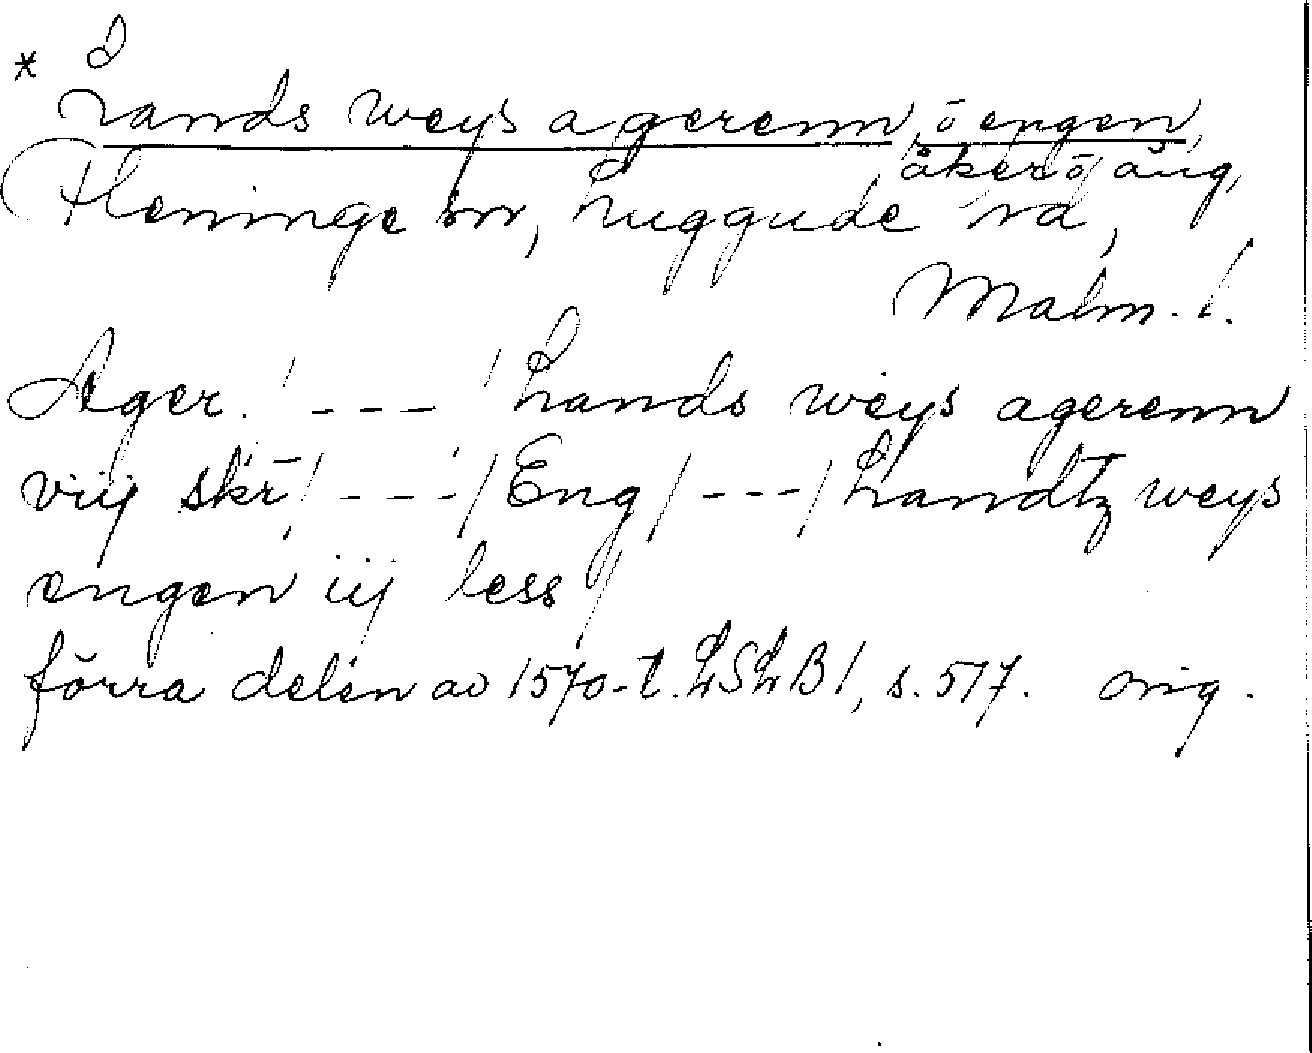 * Lands weys agerenn, o engen,
åker o äng,
Fleninge sn, Luggude hd,
Malm. l.
Ager / --- / Lands weys agerenn
viij skr̄ / --- / Eng / --- / Landtz weys
engen iij less /
förra delen av 1570-t. LSLB 1, s. 517. orig.